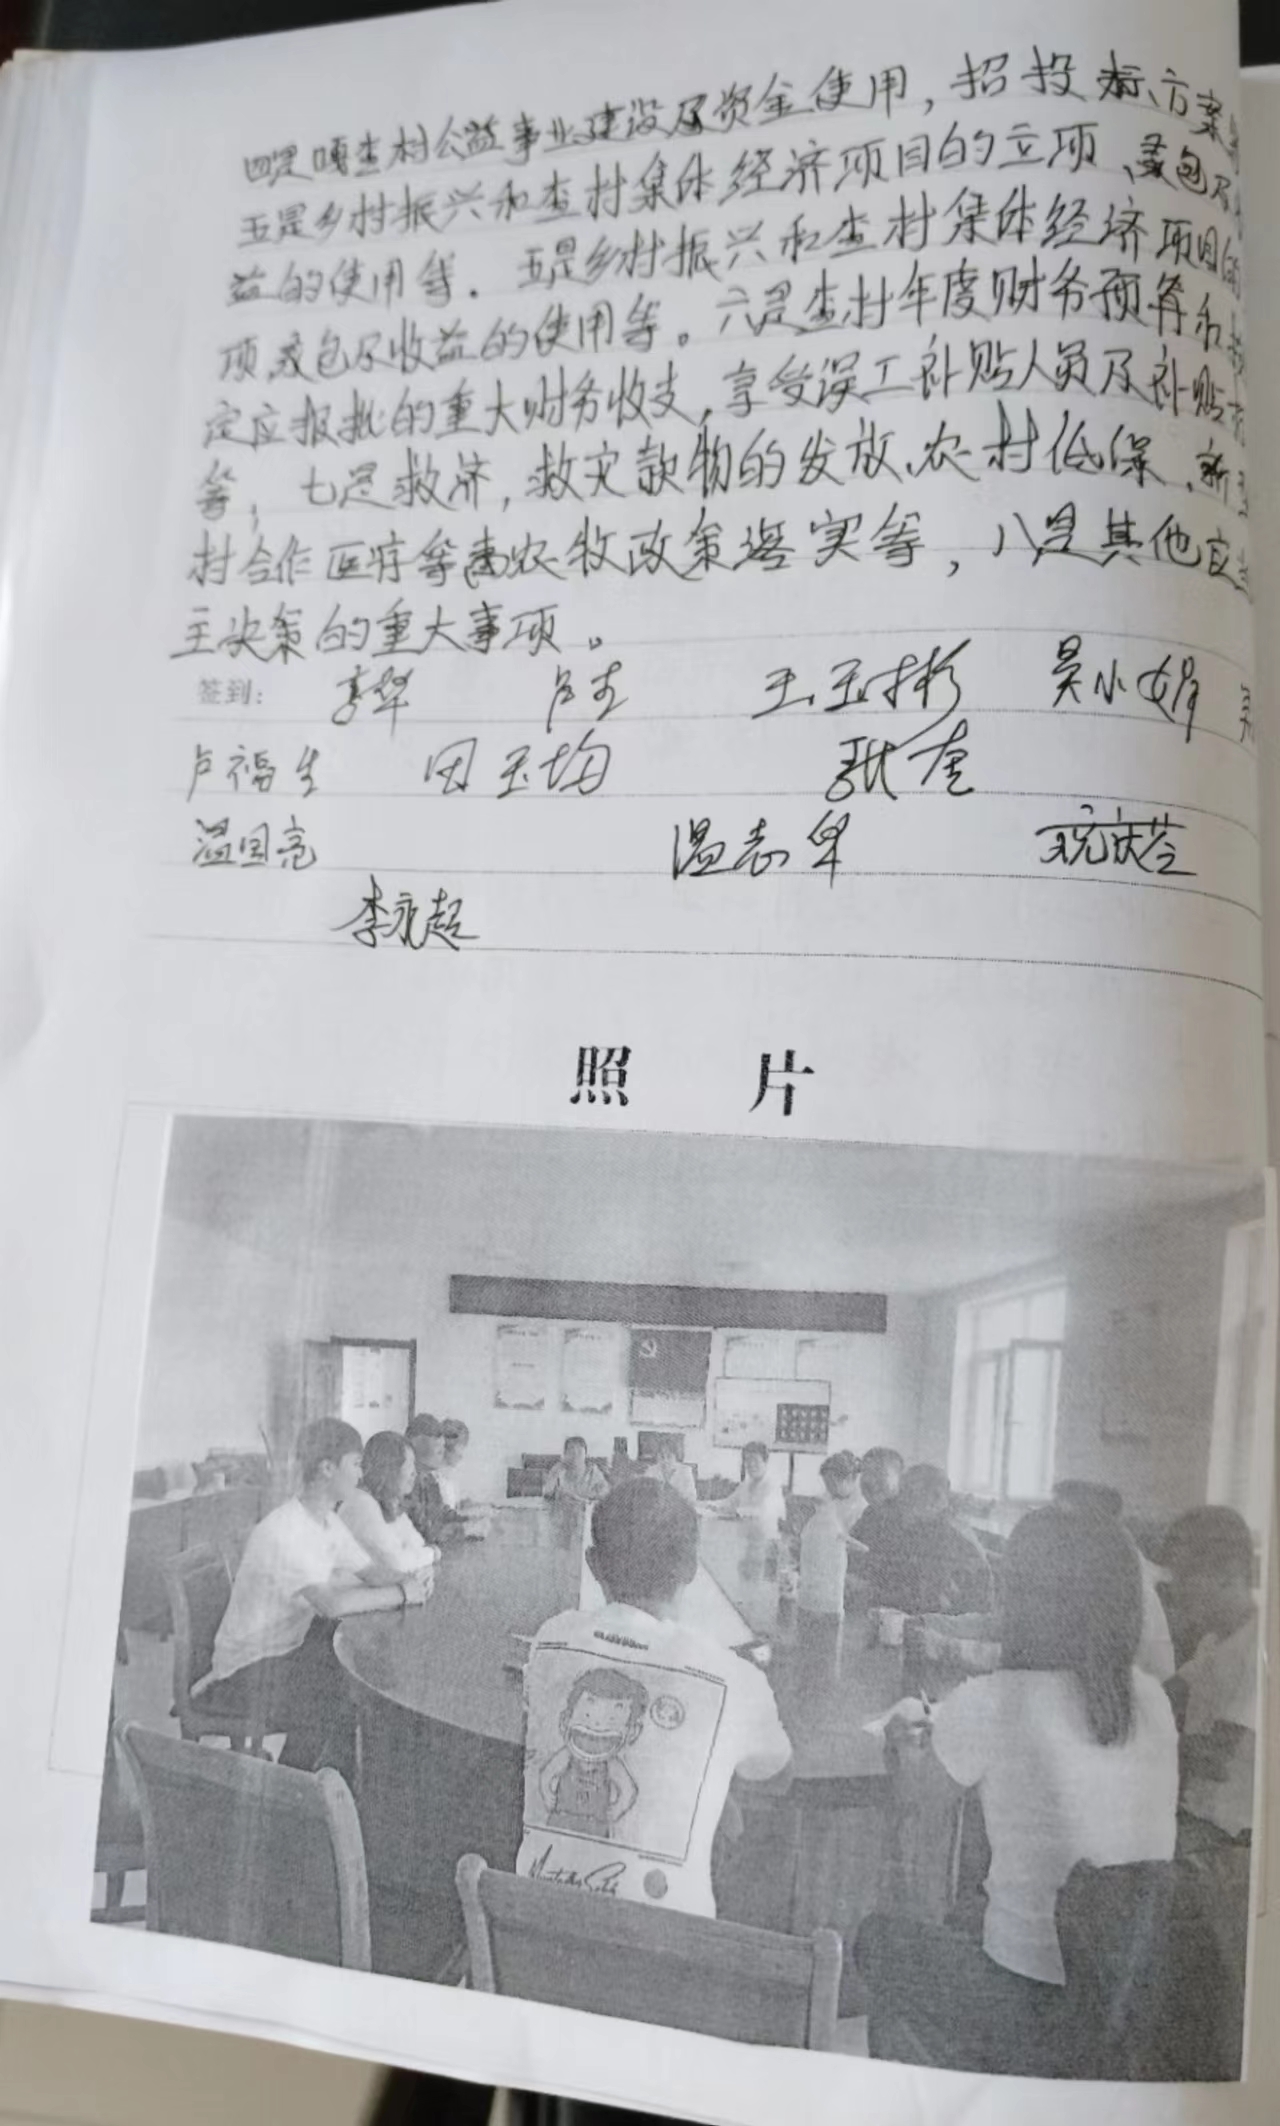 四是嘎查村公益事业建设及资金使用，招投标、方案
五是乡村振兴和查村集体经济项目的立项、承包及
益的使用等。五是乡村振兴和查村集体经济项目的
项，承包及收益的使用等。六是查村年度财务预算和
定应报批的重大财务收支，享受误工补贴人员及补贴
等，七是救济，救灾款物的发放、农村低保、新
村合作医疗等惠农牧政策落实等，八是其他应
主决策的重大事项。
签到： 王玉彬 吴小娟
卢福生 田玉均 张奎
温国亮 温志华
李永超
照 片